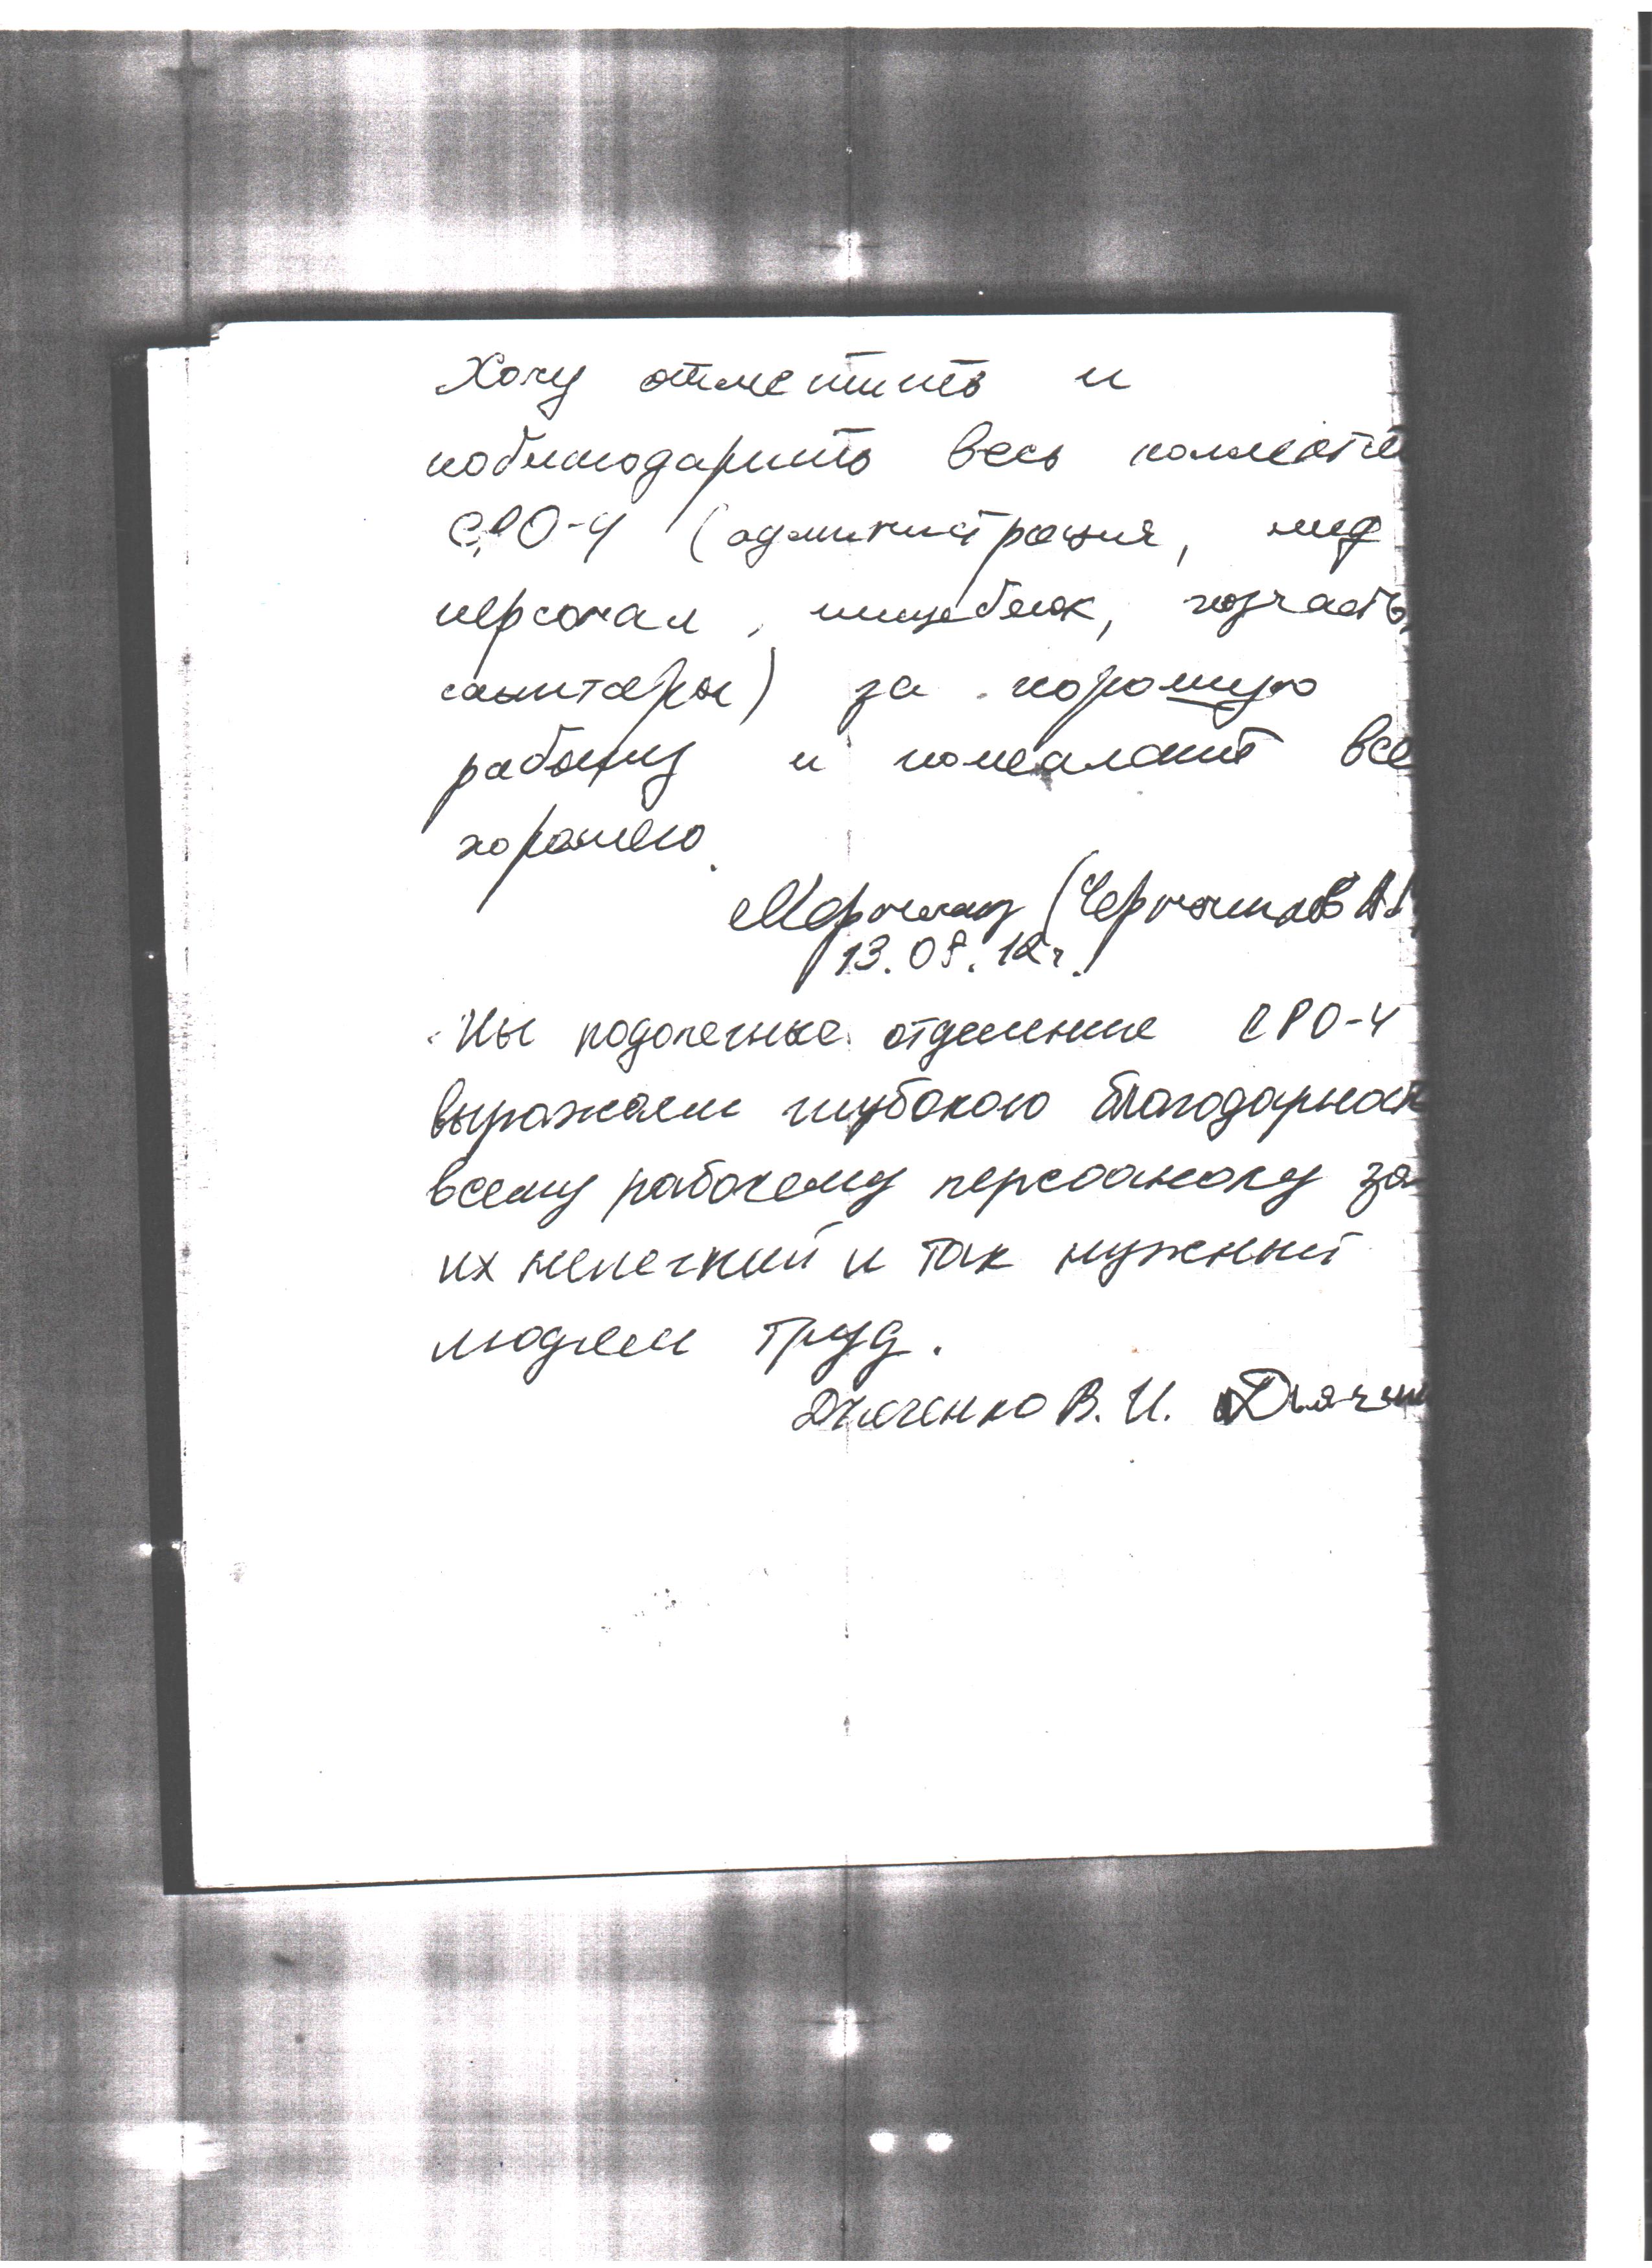 Хочу отметить и
поблагодарить весь коллекти
СРО-4 (администрация, мед
персонал, пищеблок, хозчасть,
санитары) за хорошую
работу и пожелать все
хорошего.
13.08.12г.
Мы подопечные отделение СРО-4
выражаем глубокою благодарност
всему рабочему персоаналу за
их нелегкий и так нужный
людям труд.
Дяченко В. И.